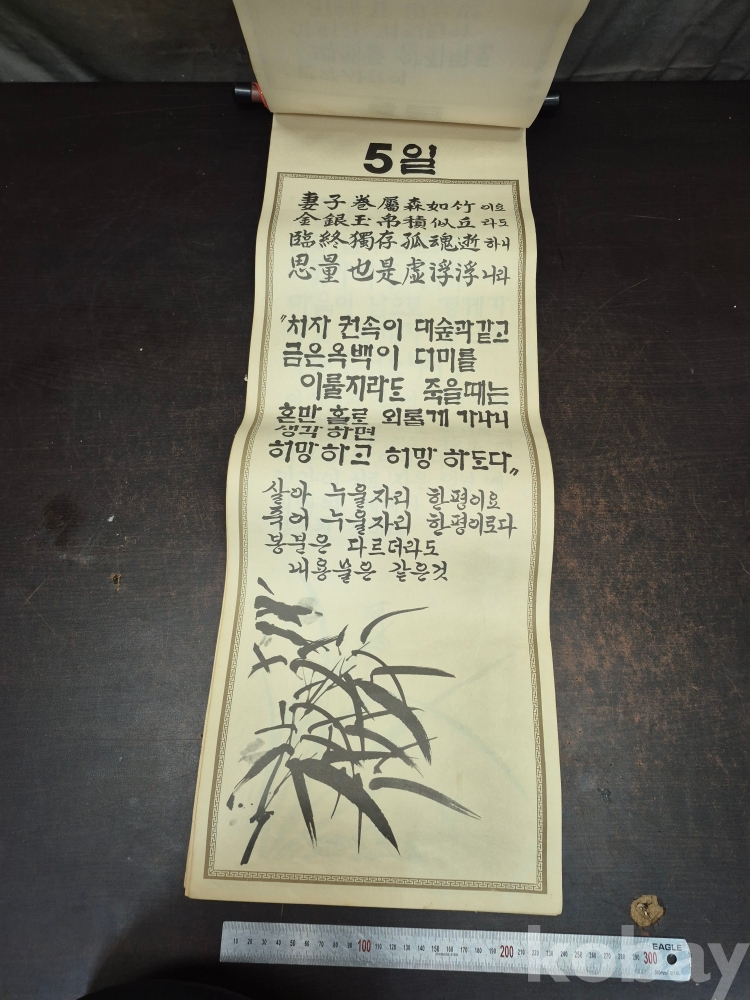 5일
妻子眷屬森如竹이요
金銀玉帛積似丘라도
臨終獨存孤魂逝하니
思量也是虛浮浮니라
"처자 권속이 대숲과같고
금은옥백이 더미를
이룰지라도 죽을때는
혼만 홀로 외롭게 가나니
생각하면
허망하고 허망하도다"
살아 누울자리 한평이요
죽어 누울자리 한평이로다
봉분은 다르더라도
내용물은 같은것
EAGLE
10 20 30 40 50 60 70 80 90 100 110 120 130 140 150 160 170 180 190 200 210 220 230 240 250 260 270 280 290 300
kobay